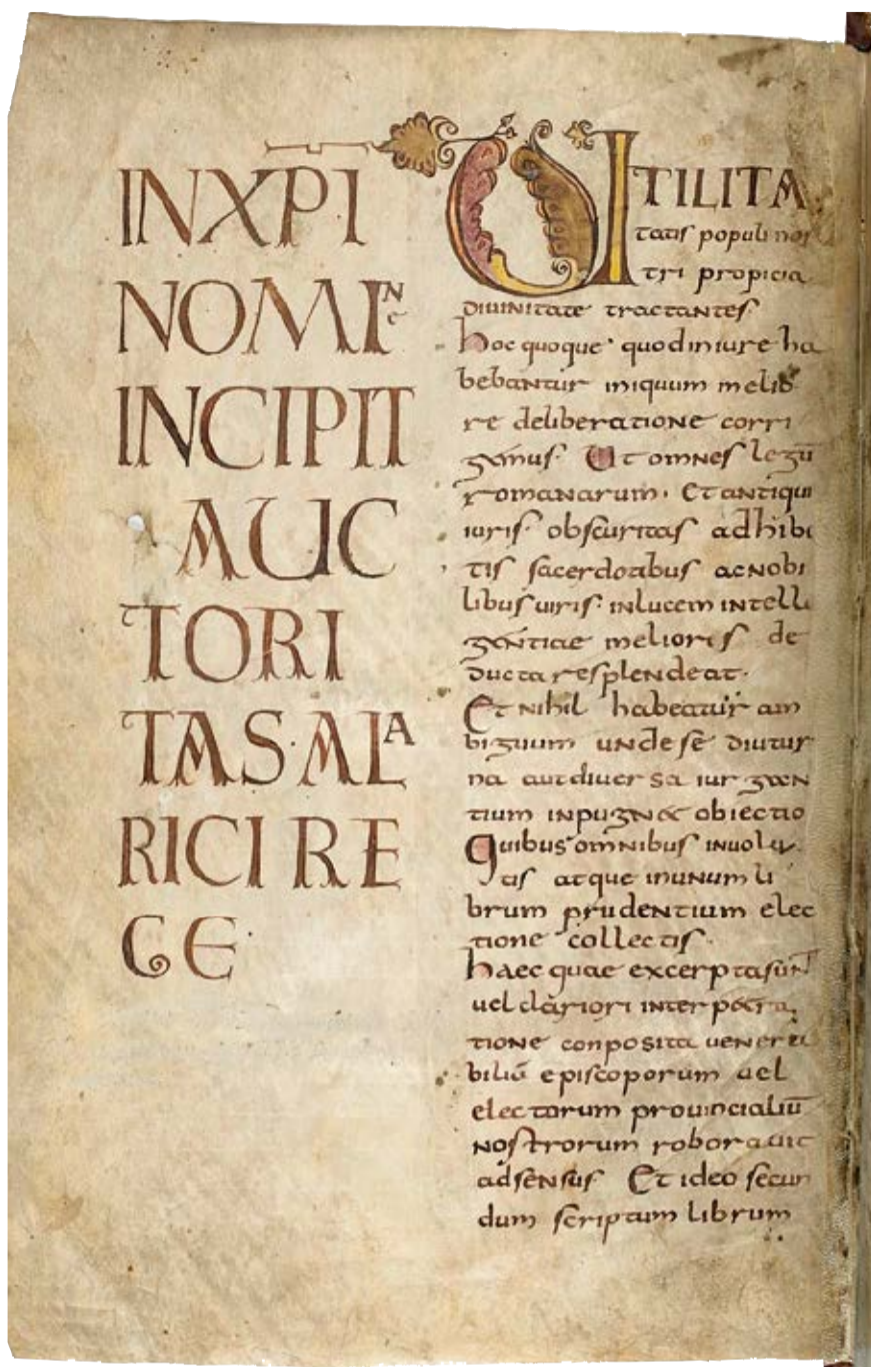 INXPI
NOMINE
INCIPIT
AUC
TORI
TAS·ALA
RICI RE
GE
UTILITA
tatis populi nos
tri propicia
diuinitate tractantes·
hoc quoque· quod in iure ha
bebantur iniquum melio
re deliberatione corri
gimus· Ut omnes legū
romanarum· Et antiqui
iuris· obscuritas adhibi
tis sacerdotibus ac nobi
libus uiris· in lucem intelli
gentiae melioris de
ducta resplendeat·
Et nihil habeatur am
biguum unde se diutur
na aut diuersa iurgen
tium inpugnet obiectio
Quibus omnibus inuolu
tis atque in unum li
brum prudentium elec
tione collectis·
haec quae excerpta sunt
uel clariori interpetra
tione conposita uenera
biliū episcoporum uel
electorum prouincialiū
nostrorum roborauit
adsensus· Et ideo secun
dum scriptum librum